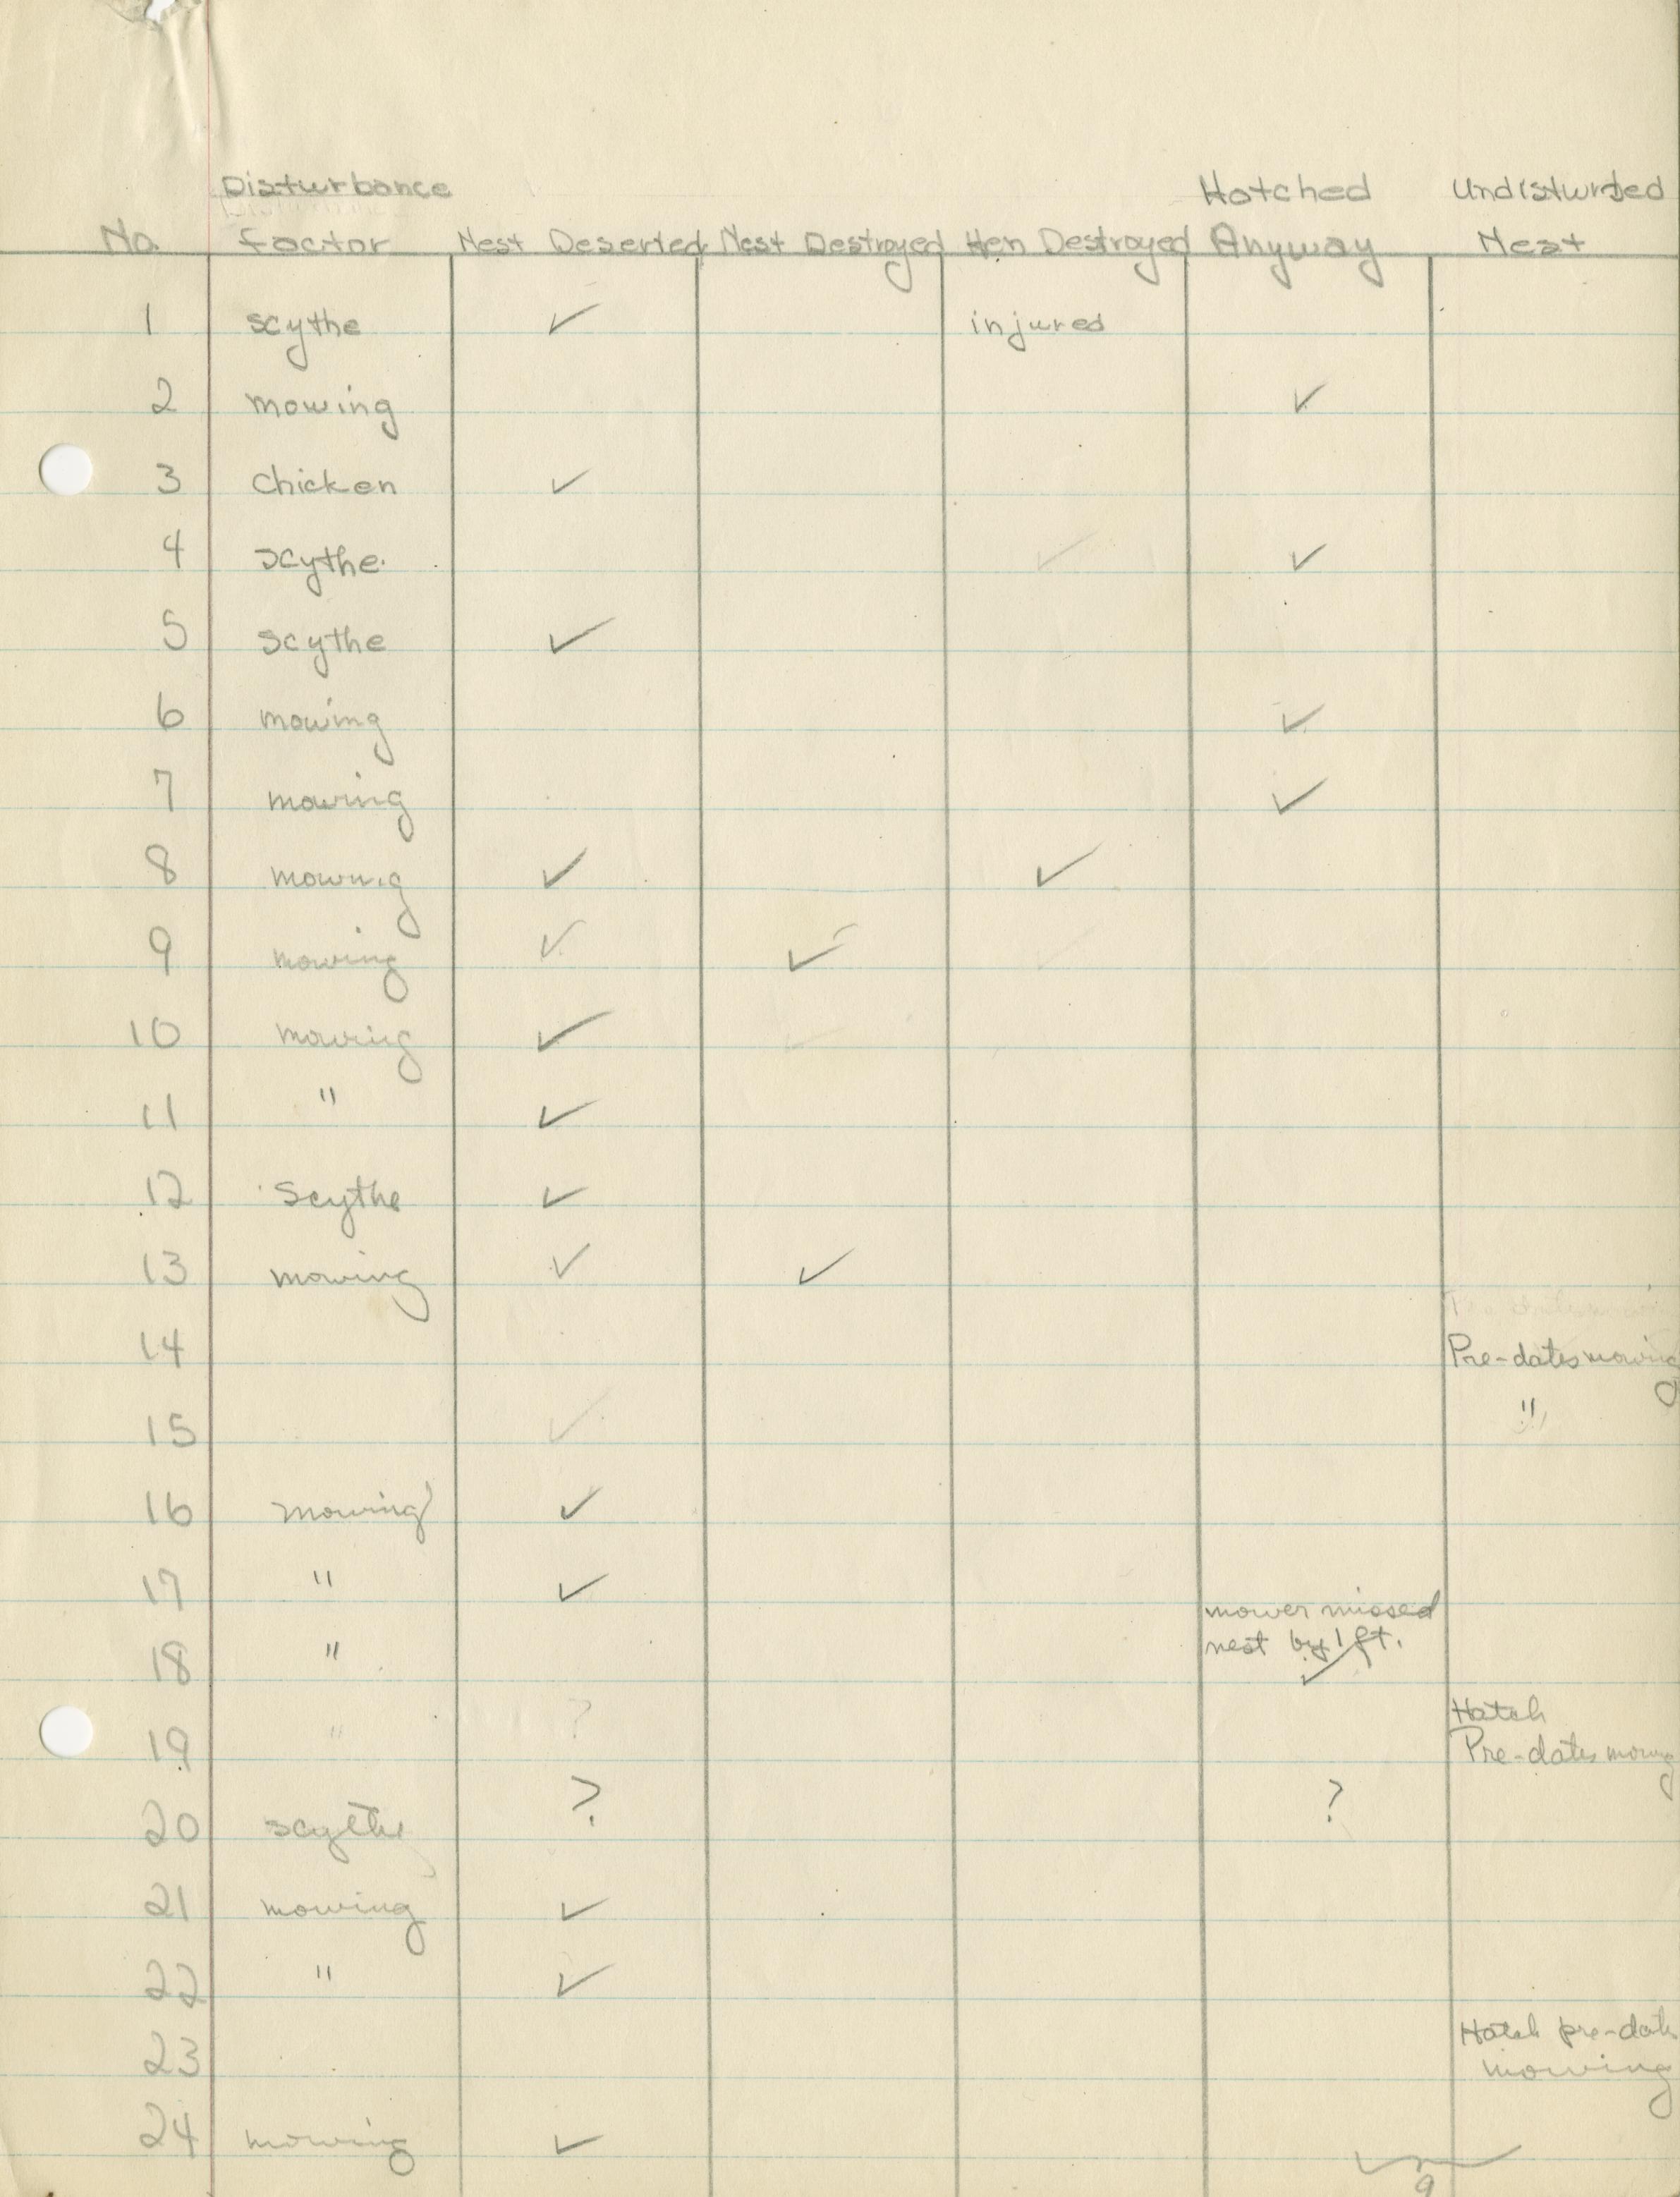 Disturbance Hatched Undisturbed
No. factor Nest Deserted Nest Destroyed Hen Destroyed Anyway Nest
1 scythe ✓ injured
2 mowing ✓
3 chicken ✓
4 scythe. ✓ ✓
5 scythe ✓
6 mowing ✓
7 mowing ✓
8 mowing ✓ ✓
9 mowing ✓ ✓
10 mowing ✓
11 " ✓
12 Scythe ✓
13 mowing ✓ ✓
14 Pre-dates mowing
15 ✓ "
16 mowing ✓
17 " ✓
mower missed
nest by 1 ft.
18 " ✓
Hatch
19 " ? Pre-dates mowing
20 scythe ? ?
21 mowing ✓
22 " ✓
Hatch pre-dates
23 mowing
24 mowing ✓
9